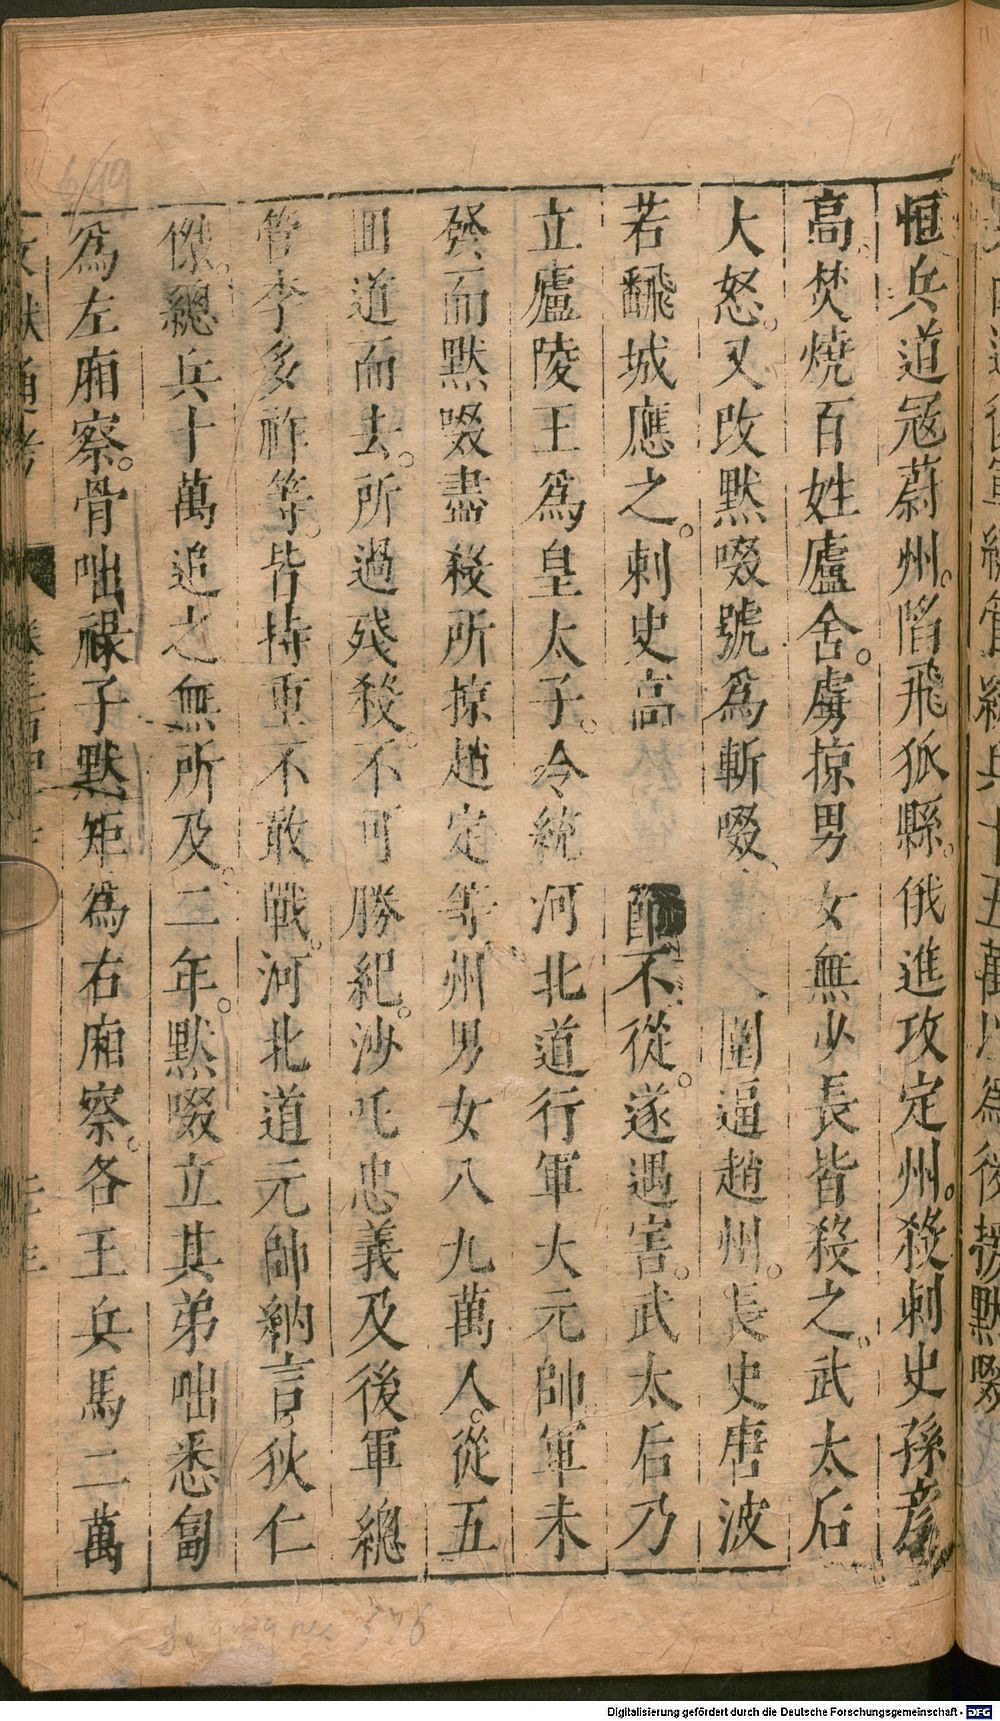 恒兵道冦蔚州。陷飛狐縣。俄進攻定州。殺刺史孫彦
高。焚燒百姓廬舍。虜掠男女無少長皆殺之。武太后
大怒。又改默啜號爲斬啜、圍逼趙州。長史唐波
若飜城應之。刺史高不從。遂遇害。武太后乃
立廬陵王爲皇太子。令統河北道行軍大元帥。軍未
發而默啜盡殺所掠趙定等州男女八九萬人。從五
回道而去。所過殘殺。不可勝紀。沙吒忠義及後軍總
管李多祚等。皆持重不敢戰。河北道元帥納言。狄仁
傑。總兵十萬追之無所及。二年。默啜立其弟咄悉匐
爲左廂察。骨咄祿子默矩爲右廂察。各王兵馬二萬
文獻通考
Deguignes 526
Digitalisierung gefördert durch die Deutsche Forschungsgemeinschaft - DFG